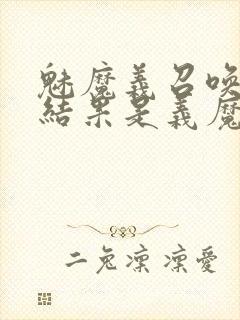 魅魔義召喚
結果是義魔
二兔凜凜愛